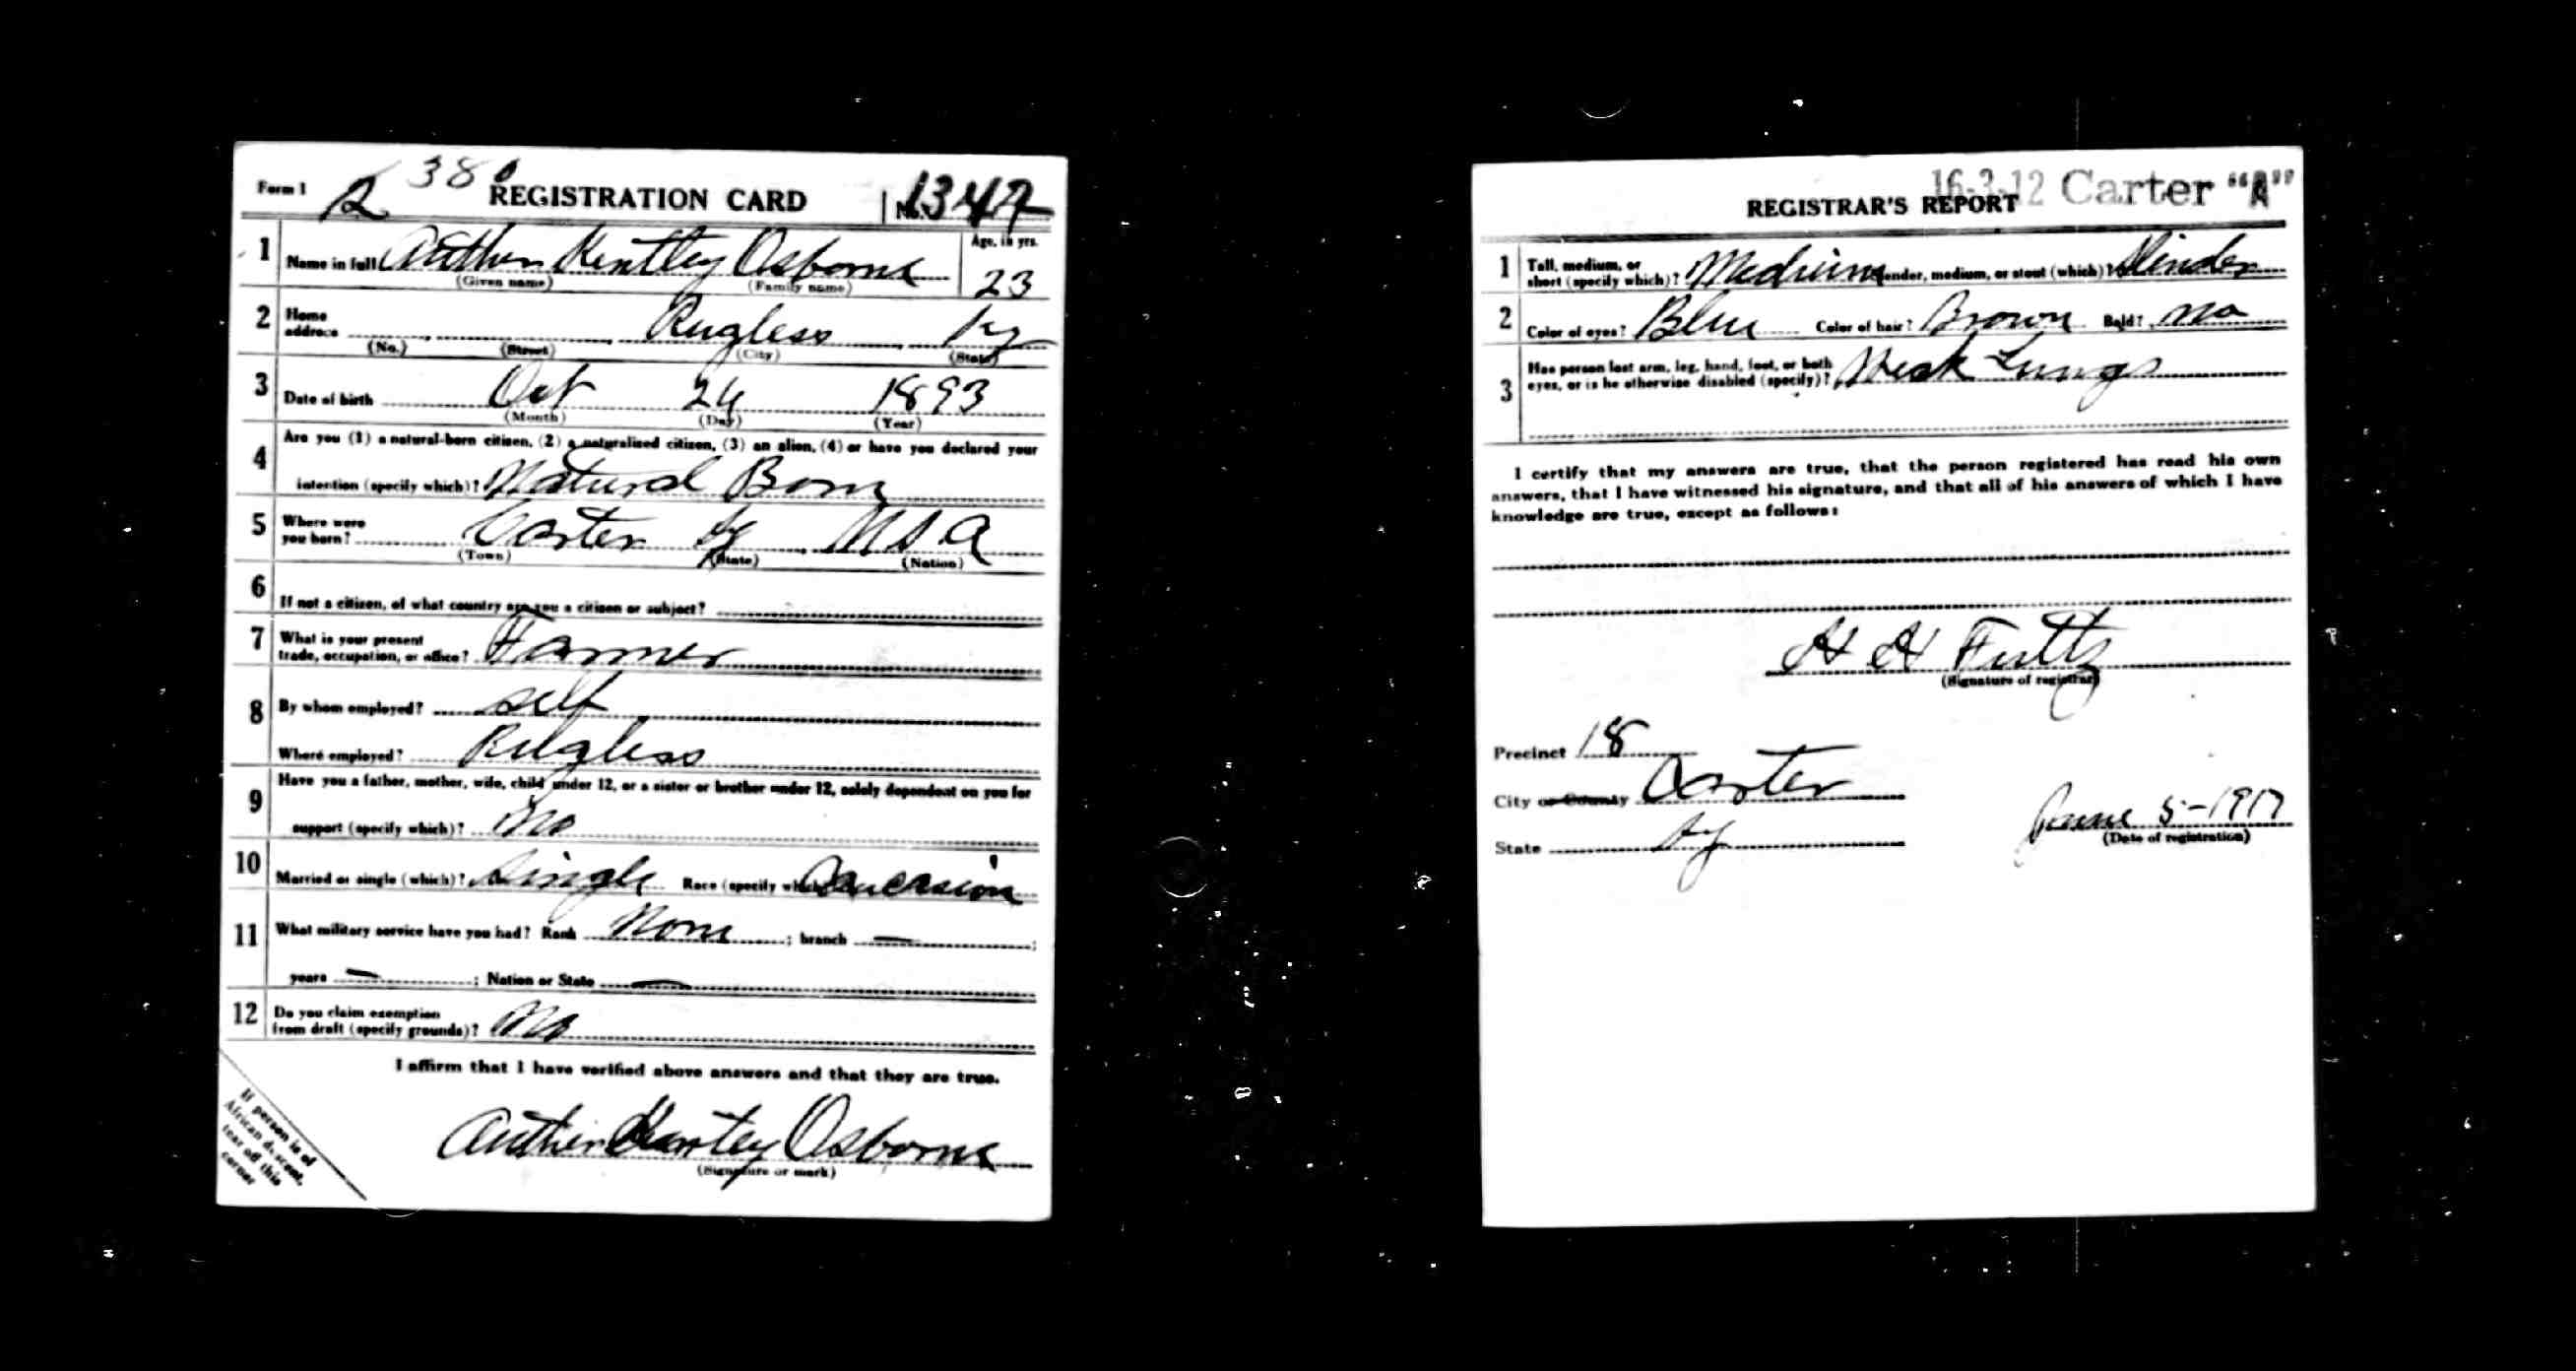 Form 1 380 REGISTRATION CARD No. 1347
1 Name in full Author Kentley Osborne Age, in yrs.
(Given name) (Family name) 23
2 Home address Rugless Ky
(No.) (Street) (City) (State)
3 Date of birth Oct 24 1893
(Month) (Day) (Year)
4 Are you (1) a natural-born citizen, (2) a naturalized citizen, (3) an alien, (4) or have you declared your
intention (specify which)? Natural Born
5 Where were you born? Carter Ky USA
(Town) (State) (Nation)
6 If not a citizen, of what country are you a citizen or subject?
7 What is your present
trade, occupation, or office? Farmer
8 By whom employed? self
Where employed? Rugless
9 Have you a father, mother, wife, child under 12, or a sister or brother under 12, solely dependent on you for
support (specify which)? No
10 Married or single (which)? Single Race (specify which)? Caucasian
11 What military service have you had? Rank None ; branch — ;
years — ; Nation or State —
12 Do you claim exemption
from draft (specify grounds)? No
I affirm that I have verified above answers and that they are true.
Author Kentley Osborne
(Signature or mark)
If person is of
African descent,
tear off this
corner
16-3-12 Carter "A"
REGISTRAR'S REPORT
1 Tall, medium, or
short (specify which)? Medium Slender, medium, or stout (which)? Slinder
2 Color of eyes? Blue Color of hair? Brown Bald? No
3 Has person lost arm, leg, hand, foot, or both
eyes, or is he otherwise disabled (specify)? Weak Lungs
I certify that my answers are true, that the person registered has read his own
answers, that I have witnessed his signature, and that all of his answers of which I have
knowledge are true, except as follows:
H H Fultz
(Signature of registrar)
Precinct 18
City or County Carter
State Ky
June 5-1917
(Date of registration)